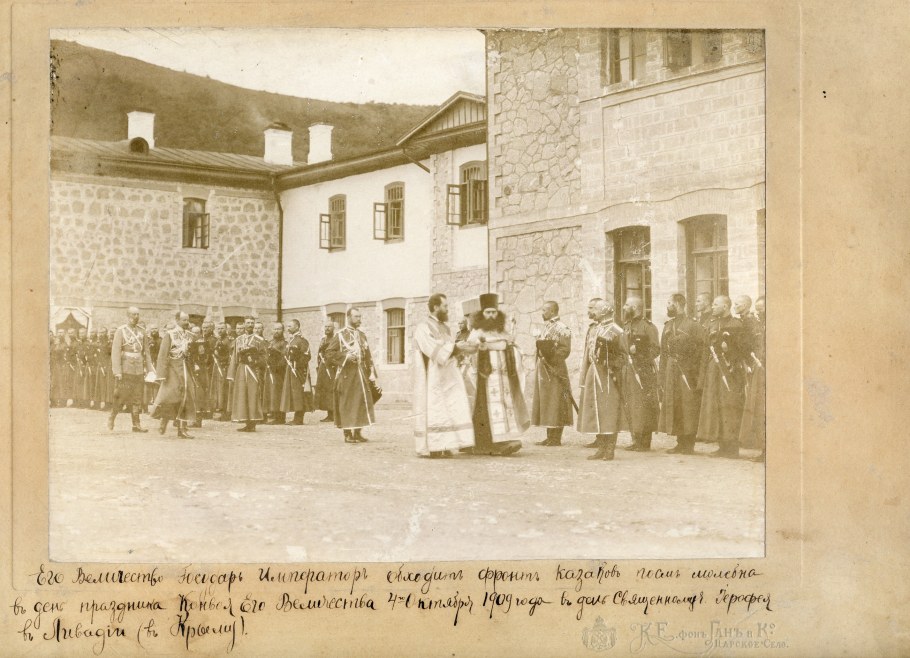 Его Величество Государь Императоръ обходитъ фронтъ казаковъ послѣ молебна
въ день праздника Конвоя Его Величества 4го Октября 1909 года въ день Священномуч. Іерофея
въ Ливадіи (въ Крыму).
К. Е. фонъ Ганъ и Ко.
Царское-Село.